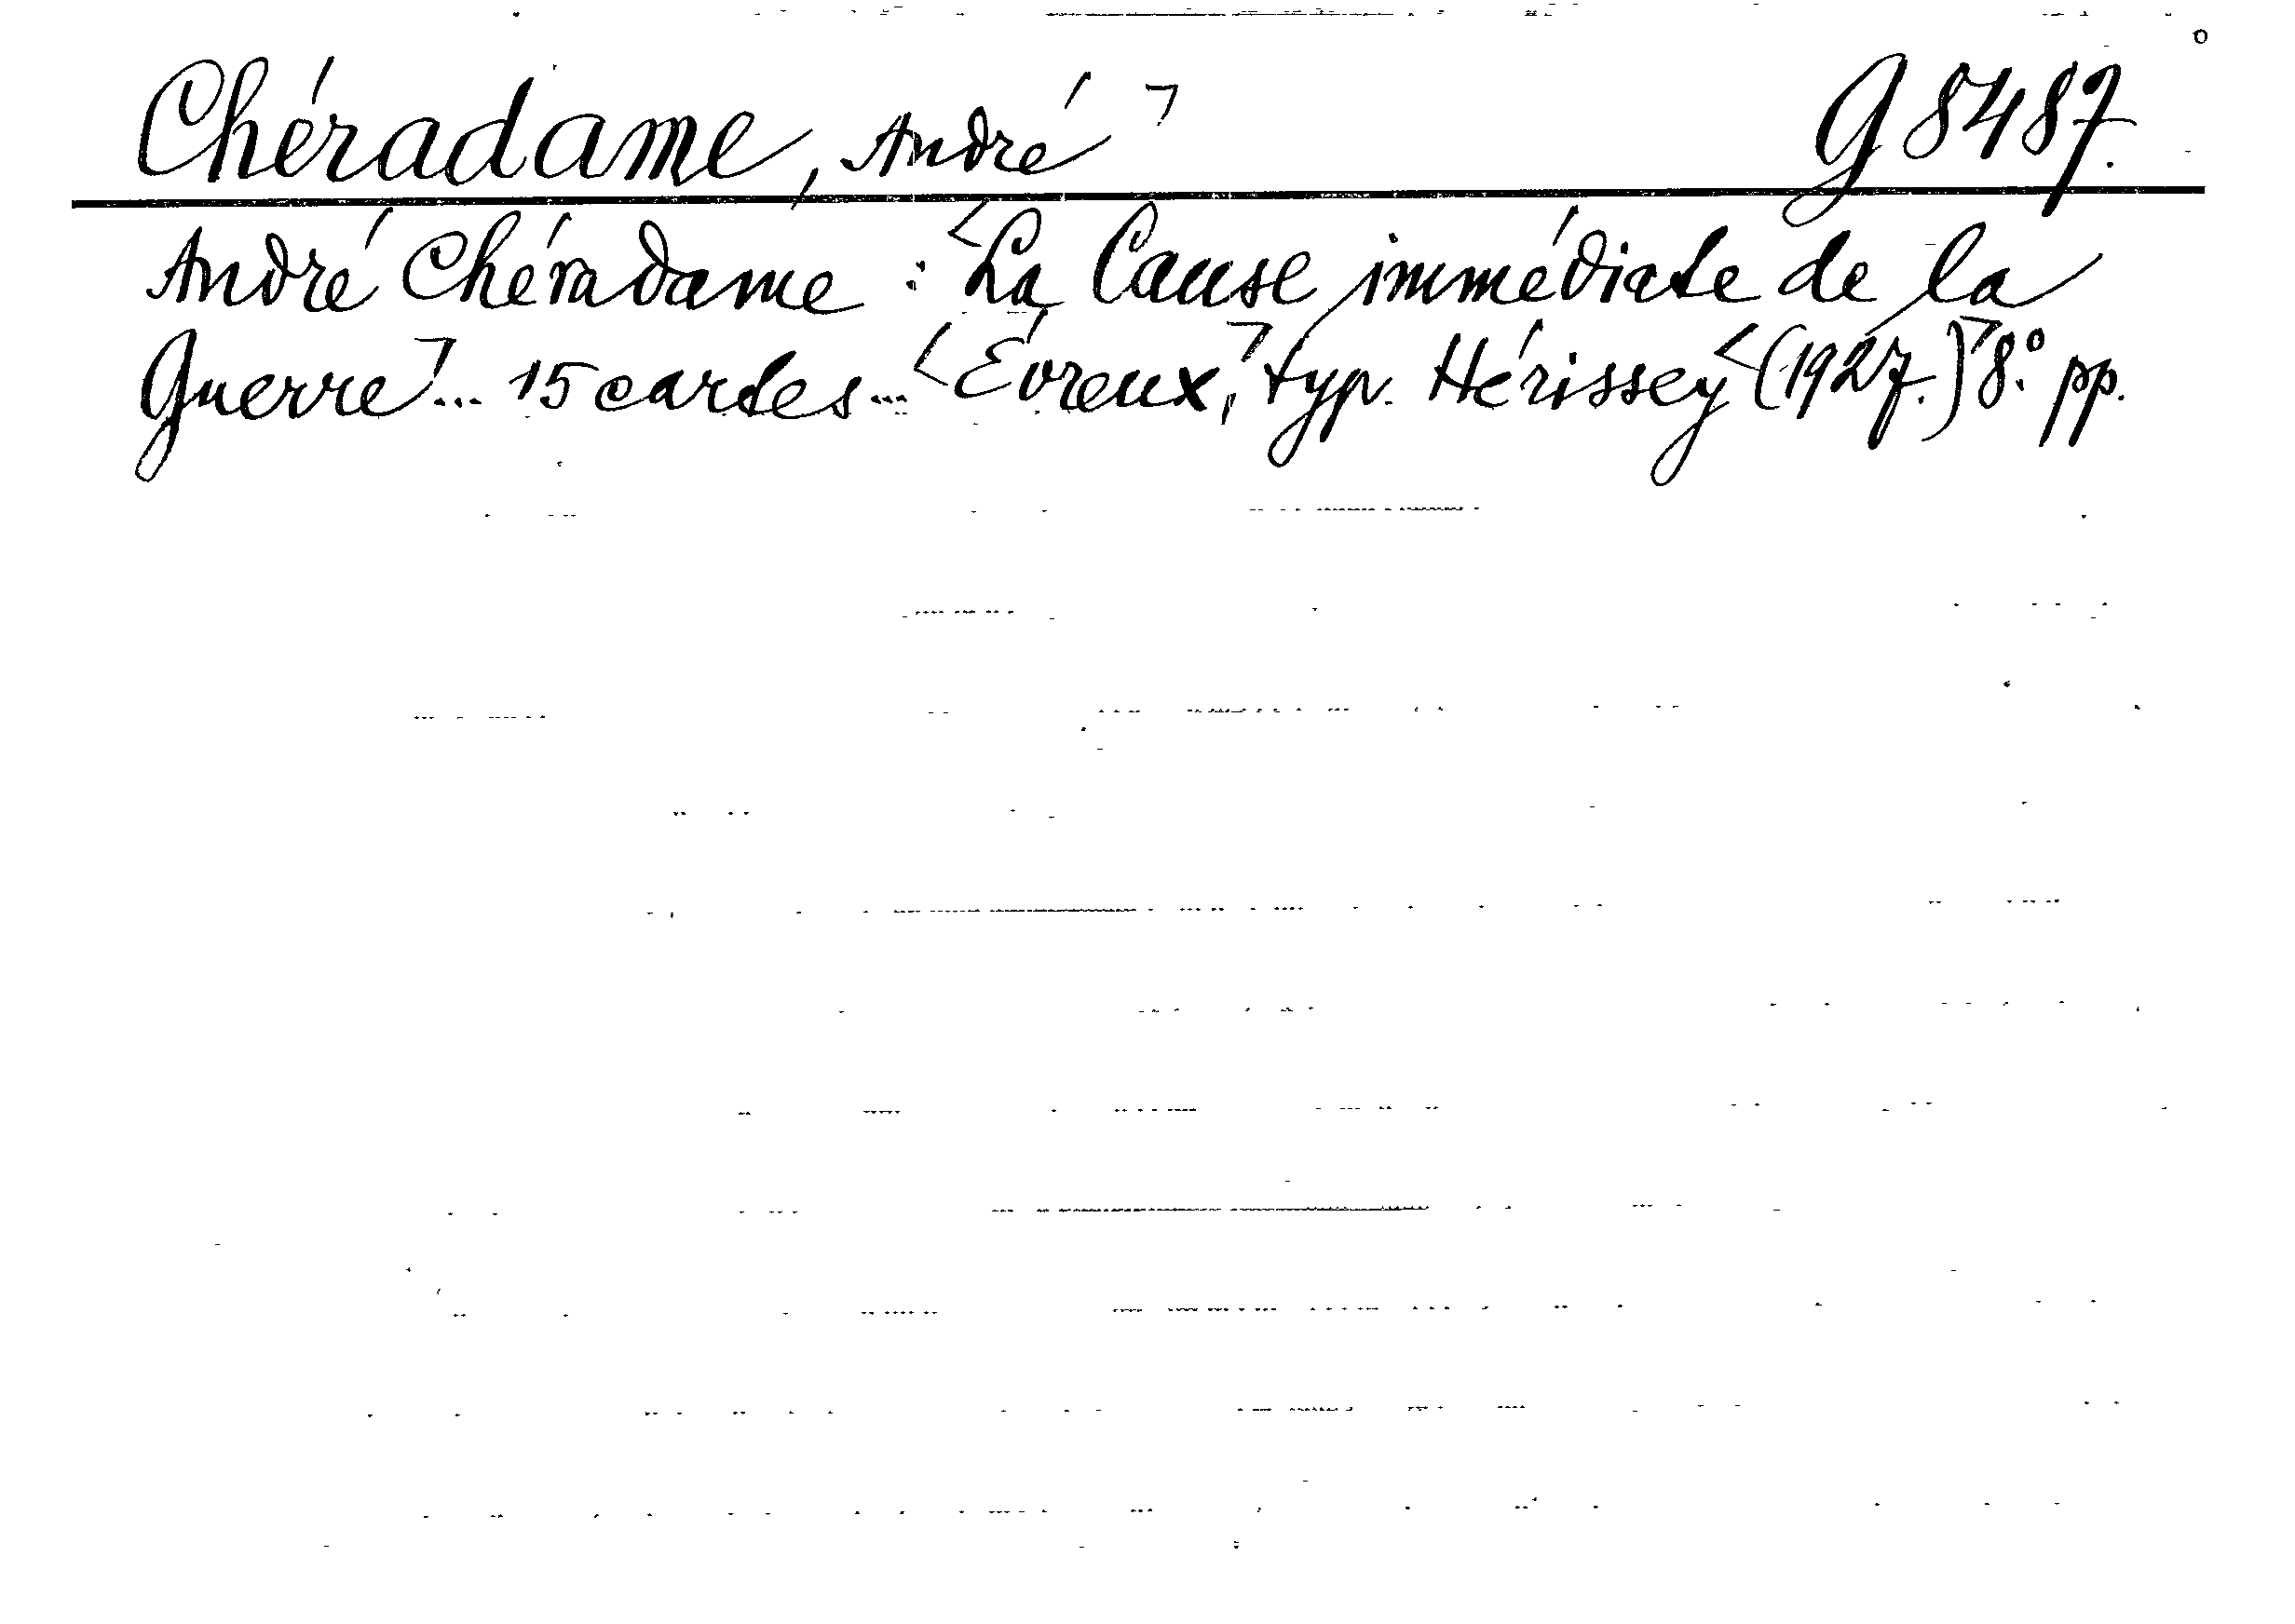 Chéradame, André ⌝ G 8487.
André Chéradame : <La Cause immédiate de la
Guerre⌝... 15 cartes... <Évreux,⌝ typ. Hérissey <(1927.)⌝ 8.° pp.